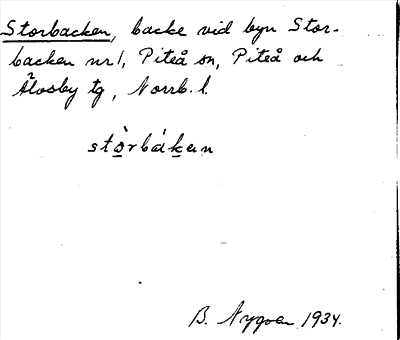 Storbacken, backe vid byn Stor-
backen nr 1, Piteå sn, Piteå och
Älvsby tg, Norrb. l.
stòrbákan
B. Nygren 1934.